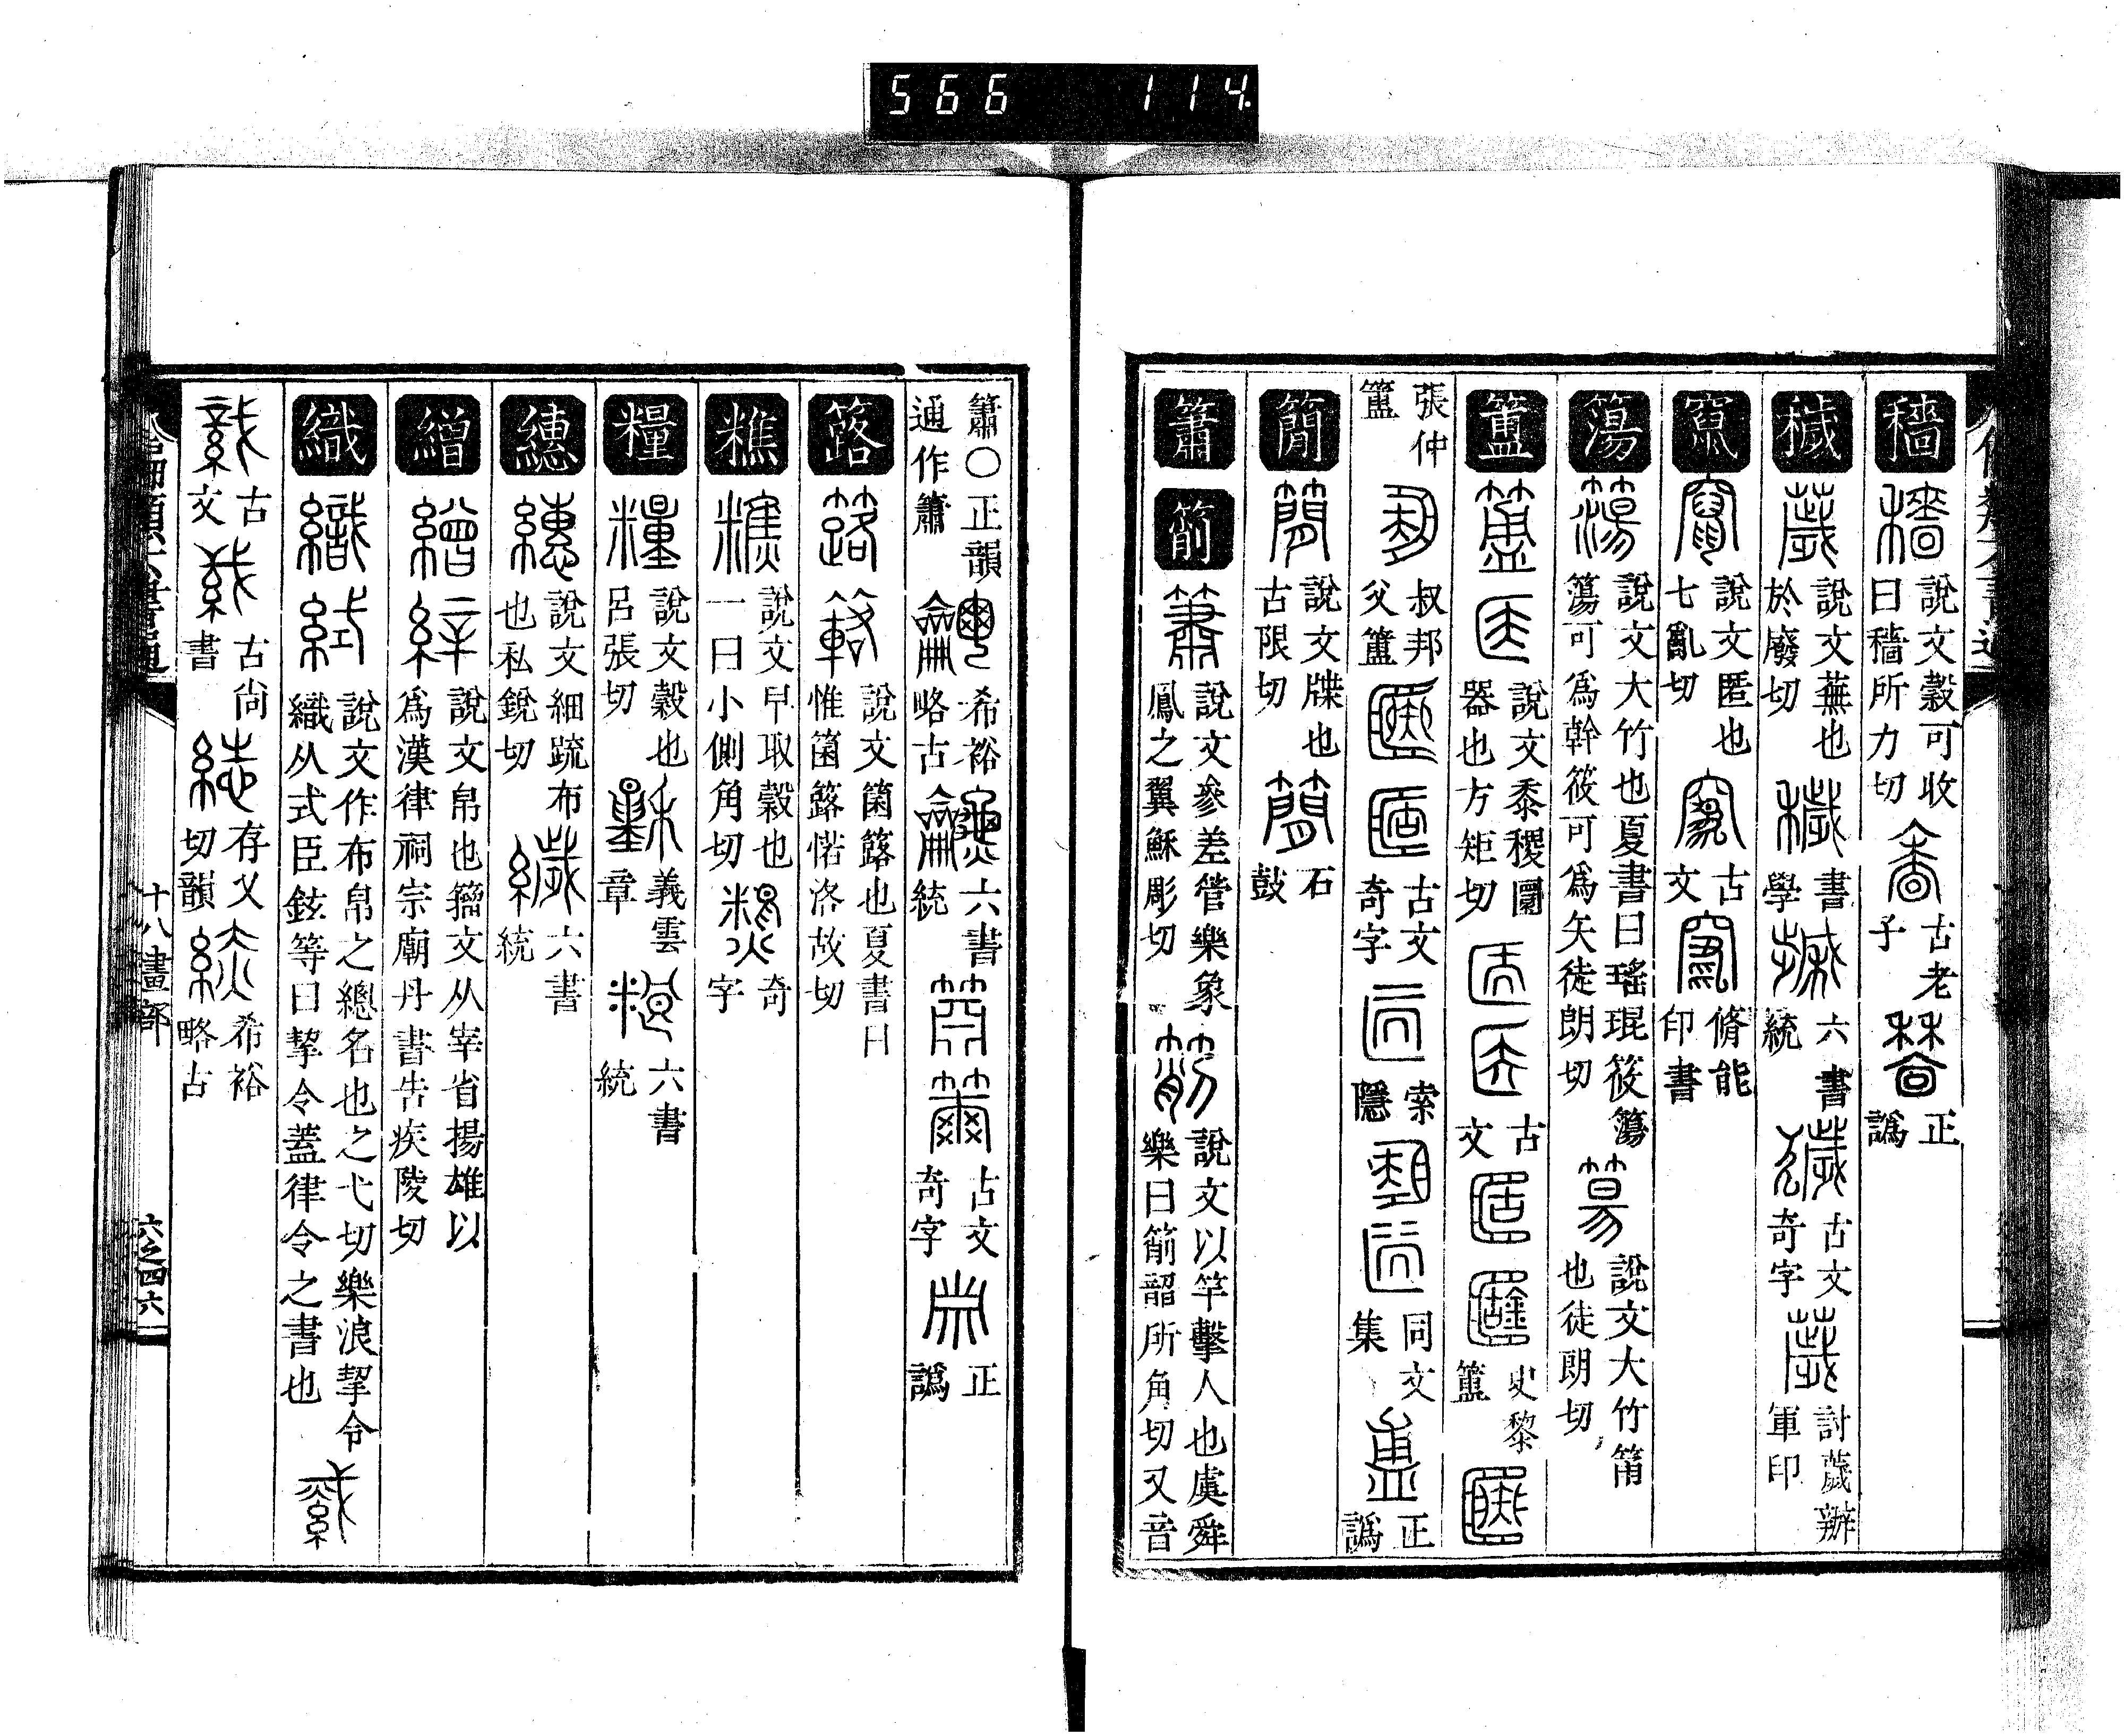 566 114
穡 說文穀可收曰穡所力切 古老子 正譌
穢 說文蕪也於廢切 書學 六書統 古文奇字 討薉辦軍印
竄 說文匿也七亂切 古文 脩能印書
簜 說文大竹也夏書曰瑤琨筱簜簜可爲幹筱可爲矢徒朗切 說文大竹筩也徒朗切
簠 說文黍稷圜器也方矩切 古文 史黎簠
張仲簠 叔邦父簠 古文奇字 索隱 同文集 正譌
簡 說文牒也古限切 石鼓
簫 箾 說文參差管樂象鳳之翼穌彫切 說文以竿擊人也虞舜樂曰箾韶所角切又音
簫○正韻通作簫 希裕略古 六書統 古文奇字 正譌
簬 說文箘簬也夏書曰惟箘簬楛洛故切
糕 說文早取穀也一曰小側角切 奇字
糧 說文穀也呂張切 義雲章 六書統
繐 說文細疏布也私銳切 六書統
繒 說文帛也籀文从宰省揚雄以爲漢律祠宗廟丹書告疾陵切
織 說文作布帛之總名也之弋切樂浪挈令織从式臣鉉等曰挈令蓋律令之書也
古文 古尚書 存乂切韻 希裕略古
十八畫部
六之四六